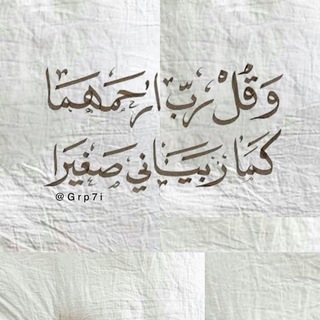 وَقُلْ رَبِّ ارحَمهُمَا
كَمَا رَبَيَاني صَغيرَا
@Grp7i